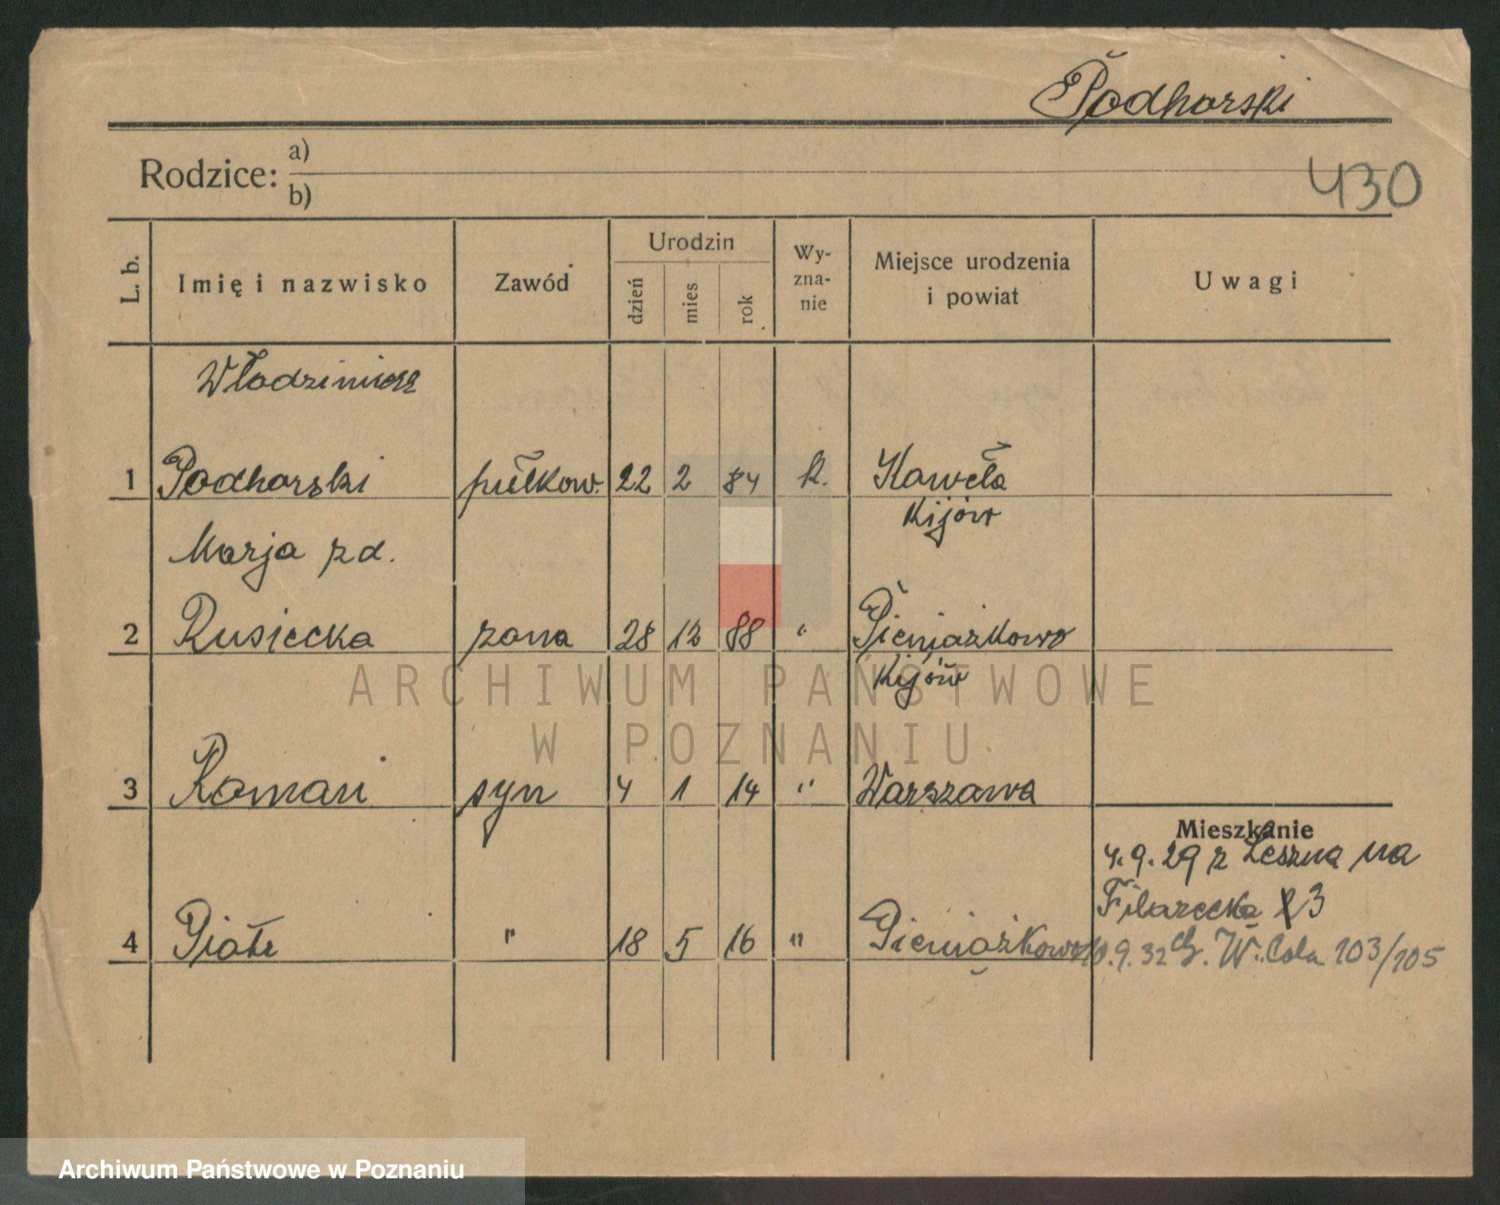 Podhorski
Rodzice: a)
b)
430
L. b.
Imię i nazwisko
Zawód
Urodzin
dzień
mies
rok
Wy-
zna-
nie
Miejsce urodzenia
i powiat
Uwagi
Włodzimierz
1 Podhorski pułkow. 22 2 84 k. Kaweła
Kijów
Marja z d.
2 Rusiecka żona 28 12 88 " Pieniążkowo
Kijów
3 Roman syn 4 1 14 " Warszawa
Mieszkanie
4.9.29 z Leszna na
Filarecka 3
4 Piotr " 18 5 16 " Pieniążkowo
10.9.32 G. W. Cola 103/105
ARCHIWUM PAŃSTWOWE
W POZNANIU
Archiwum Państwowe w Poznaniu